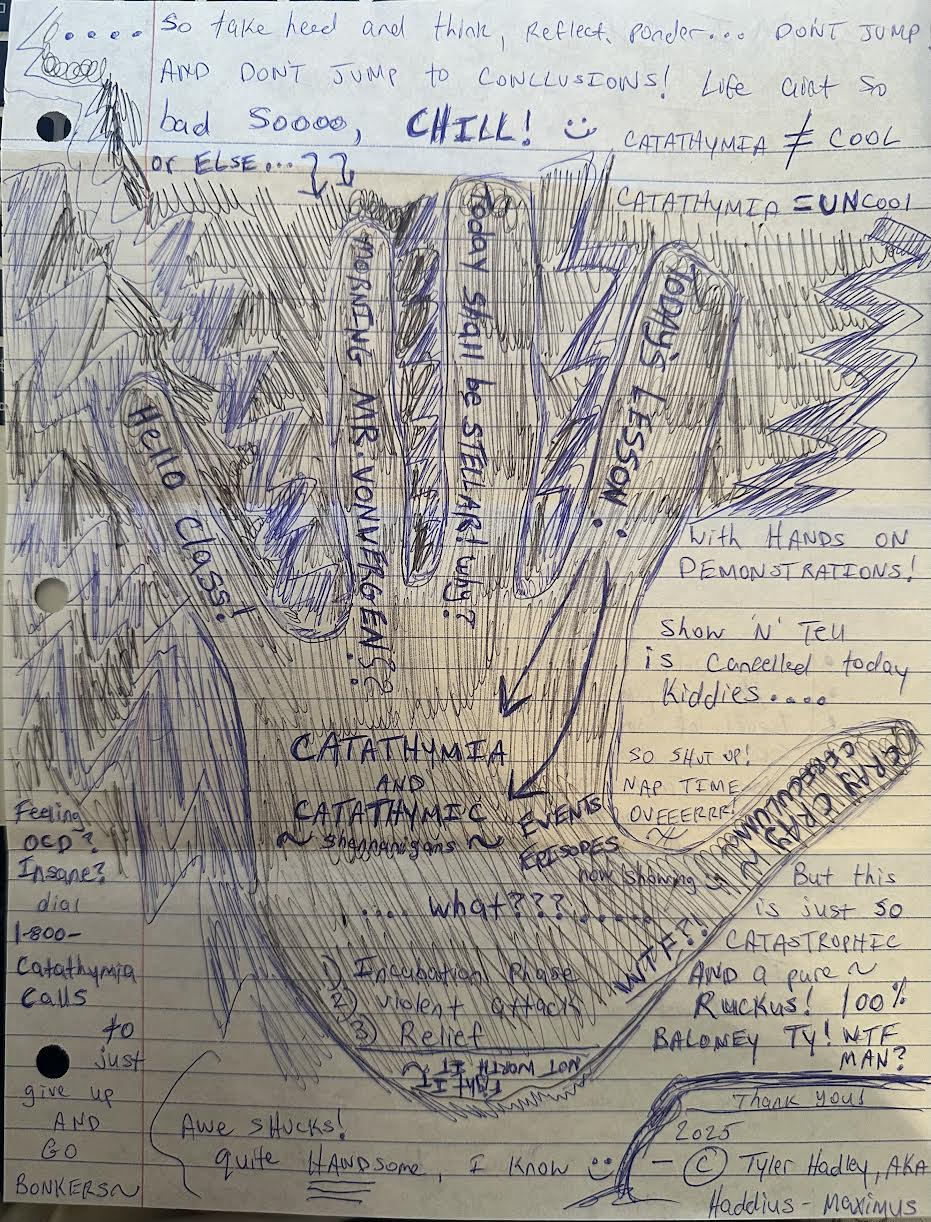 So take heed and think, Reflect, Ponder... DON'T JUMP!
AND DON'T JUMP to CONCLLUSIONS! Life aint so
bad Soooo, CHILL!
CATATHYMIA ≠ COOL
or ELSE...
CATATHYMIA = UNCOOL
Hello Class!
MORNING MR. VONWERGEN!?
Today Shall be STELLAR! why?
TODAY'S LESSON:
with HANDS ON
DEMONSTRATIONS!
Show 'N' Tell
is Cancelled today
Kiddies....
SO SHUT UP!
NAP TIME
OVEEERRR!
CATATHYMIA
AND
CATATHYMIC EVENTS
~ Shennanigans ~ EPISODES
now showing
CRAY CRAY IN
.... what???......
WTF?!
1) Incubation Phase
2) violent attack
3) Relief
NOT WORTH IT ~
Fight IT
Feeling
OCD?
Insane?
dial
1-800-
Catathymia
Calls
to
just
give up
AND
GO
BONKERS~
But this
is just so
CATASTROPHIC
AND a pure ~
Ruckus! 100%
BALONEY TY! WTF
MAN?
Awe SHUCKS!
quite HANDsome, I know
Thank you!
2025
- © Tyler Hadley, AKA
Haddius - Maximus